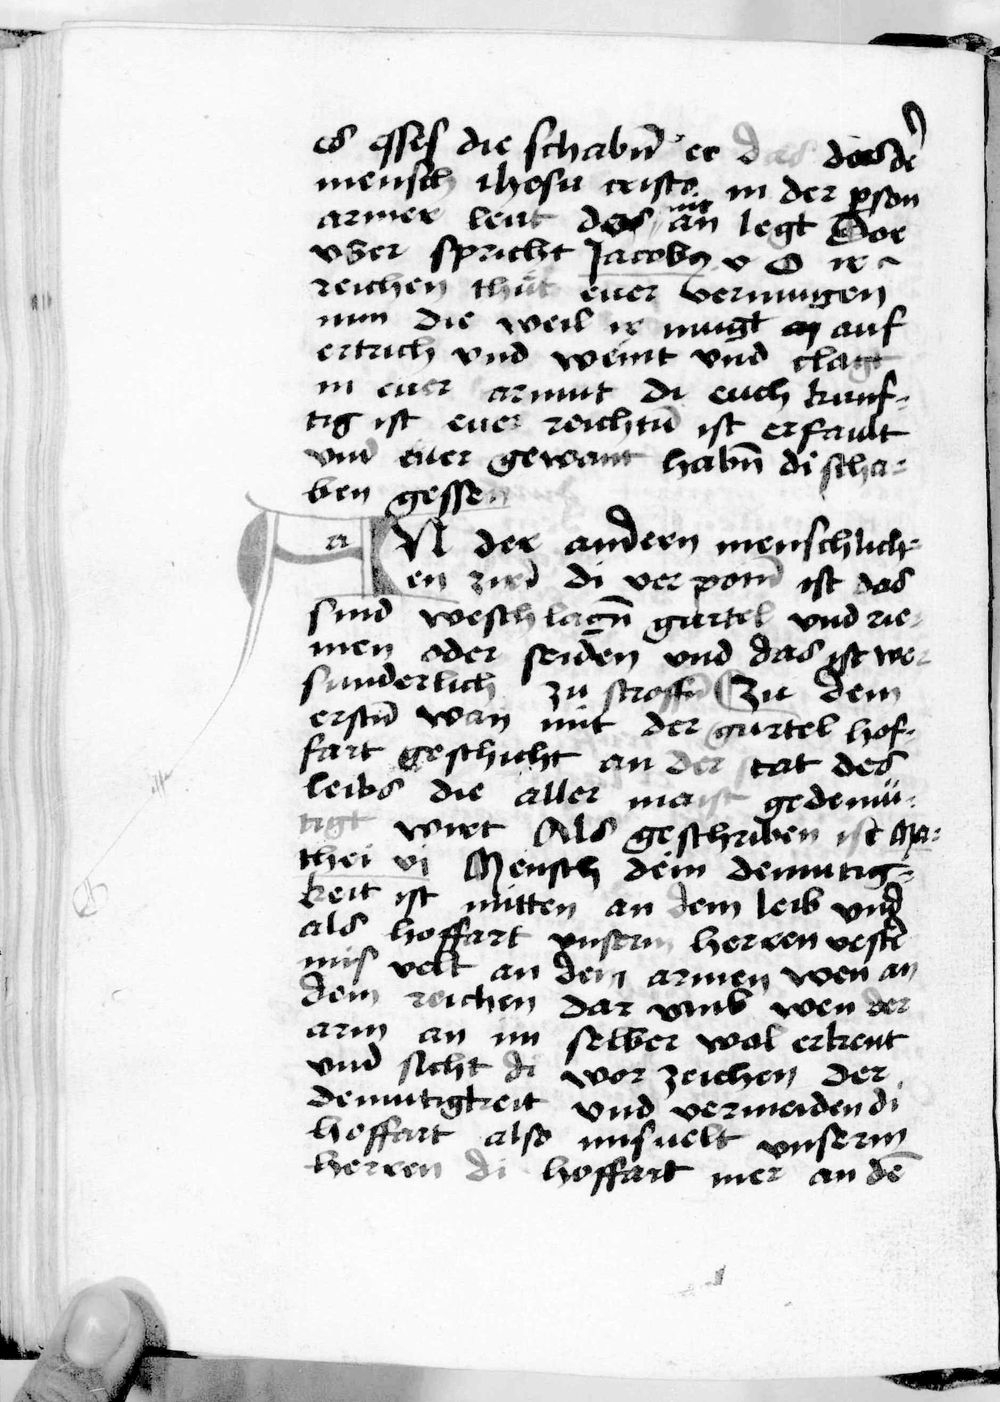 es essen die schabn̄ ee das das dē
mensch ihesu cristo in der ꝑson
armer leut das nit an legt Dor
vber spricht Jacobꝰ v O ir
reichen thut euer vermugen
nun die weil ir mugt auf
ertrich vnd weint vnd clagt
in euer armut di euch kunf-
tig ist euer reichtū ist erfault
vnd euer gewant habn̄ di scha-
ben gessen
AN der andern menschlich-
en zird di ver poten ist das
sind weschlagn̄ gurtel vnd rie-
men oder seiden vnd das ist wor
sunderlich zu stroffn̄ Zu dem
erstn̄ wan mit der gurtel hof-
fart geschicht an der stat des
leibs die aller maist gedemü-
tigt wirt Als geschriben ist Ma-
thei vi Mensch dein demutig-
keit ist mitten an dem leib vnd
als hoffart vnserm herren veste
mis velt an dem armen wen an
dem reichen dar vmb wen der
arm an im selber wol erkent
vnd sicht di wor zeichen der
demutigkeit vnd vermeiden di
hoffart also misuelt vnserm
herren di hoffart mer an dē